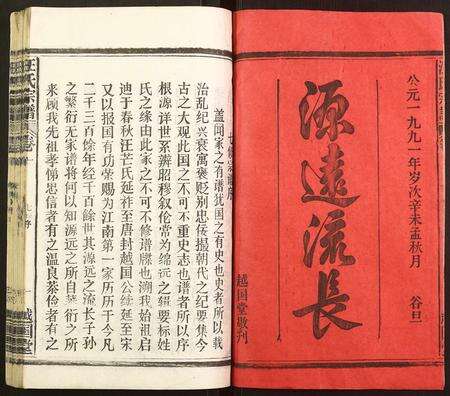 公元一九九一年岁次辛未孟秋月 谷旦
源遠流長
越国堂敬刊
盖闻家之有谱犹国之有史也史者所以载
治乱纪兴衰寓褒贬别忠佞撮朝代之纪要集今
古之大观此国之不可不重史志也谱者所以序
根源详世系辨昭穆叙伦常为绵远之纽要标姓
氏之缘由此家之不可不修谱牒也溯我始祖启
迪于春秋汪芒氏延祚至唐封越国公续延至宋
又以报国有功荣赐为江南第一家历历于今凡
二千三百馀年经千百馀世其源远之流长子孙
之繁衍无家谱将何以知源远之所自蕃衍之所
来顾我先祖孝悌忠信者有之温良恭俭者有之
汪氏宗譜
序
越国堂